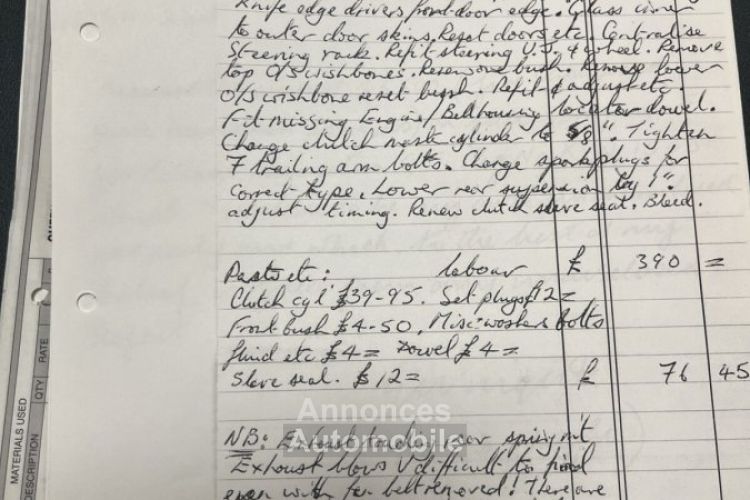 Knife edge drivers front door edge. Glass
to outer door skins. Reset doors etc. Centralise
Steering rack. Refit steering U.J. & wheel. Remove
top O/S wishbones. Renew one bush. Remove lower
O/S wishbone reset bush. Refit & adjust etc.
Fit missing Engine/Bellhousing locator dowel.
Change clutch mast cylinder to 5/8". Tighten
7 trailing arm bolts. Change spark plugs for
correct type. Lower rear suspension by 1".
adjust timing. Renew clutch slave seal. Bleed.
Parts etc: labour £ 390 =
Clutch cyl £39-95. Set plugs £12=
Front bush £4-50. Misc: washers bolts
fluid etc £4= Dowel £4=
Slave seal. £12= £ 76 45
NB: Exhaust touching rear spring n/s
Exhaust blows V difficult to find
even with fan belt removed! There are
MATERIALS USED
DESCRIPTION
QTY
RATE
Annonces
Automobile